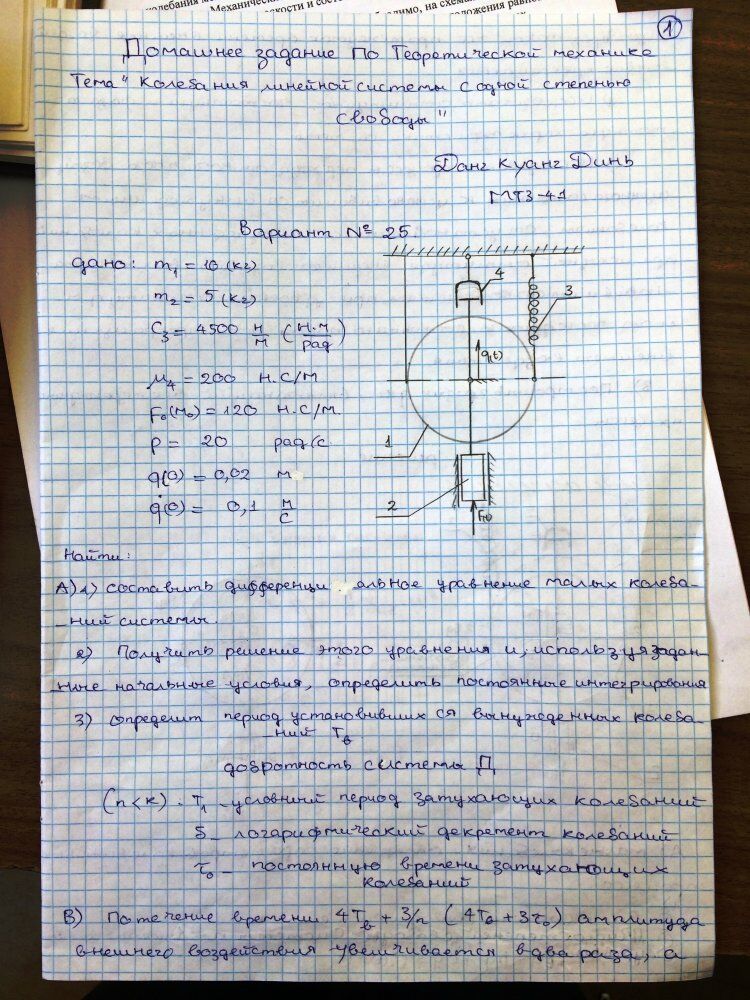 колебания
Механическ
скости и сост
бходимо, на схема
положения равн
1
Домашнее задание по Теоретической механике
Тема " Колебания линейной системы с одной степенью
свободы "
Данг Куанг Динь
МТ3-41
Вариант № 25
дано: m₁ = 10 (кг)
m₂ = 5 (кг)
C₃ = 4500 н/м (н.м/рад)
μ₄ = 200 н.с/м
F₀(м₀) = 120 н.с/м.
p = 20 рад/с
q(0) = 0,02 м
q̇(0) = 0,1 м/с
4
3
q(t)
1
2
F(t)
Найти:
A) 1) составить дифференци альное уравнение малых колеба-
-ний системы.
2) Получить решение этого уравнения и, используя задан-
нные начальные условия, определить постоянные интегрирования
3) определит период установивших ся вынужденных колеба-
-ний Tв
добротность системы Д
(n<k). T₁ - условный период затухающих колебаний
δ - логарифмический декремент колебаний
τ₀ - постоянную времени затухающих
колебаний
B) По течение времени 4Tв + 3/n (4Tв + 3τ₀) амплитуда
внешнего воздействия увеличивается в два раза, а